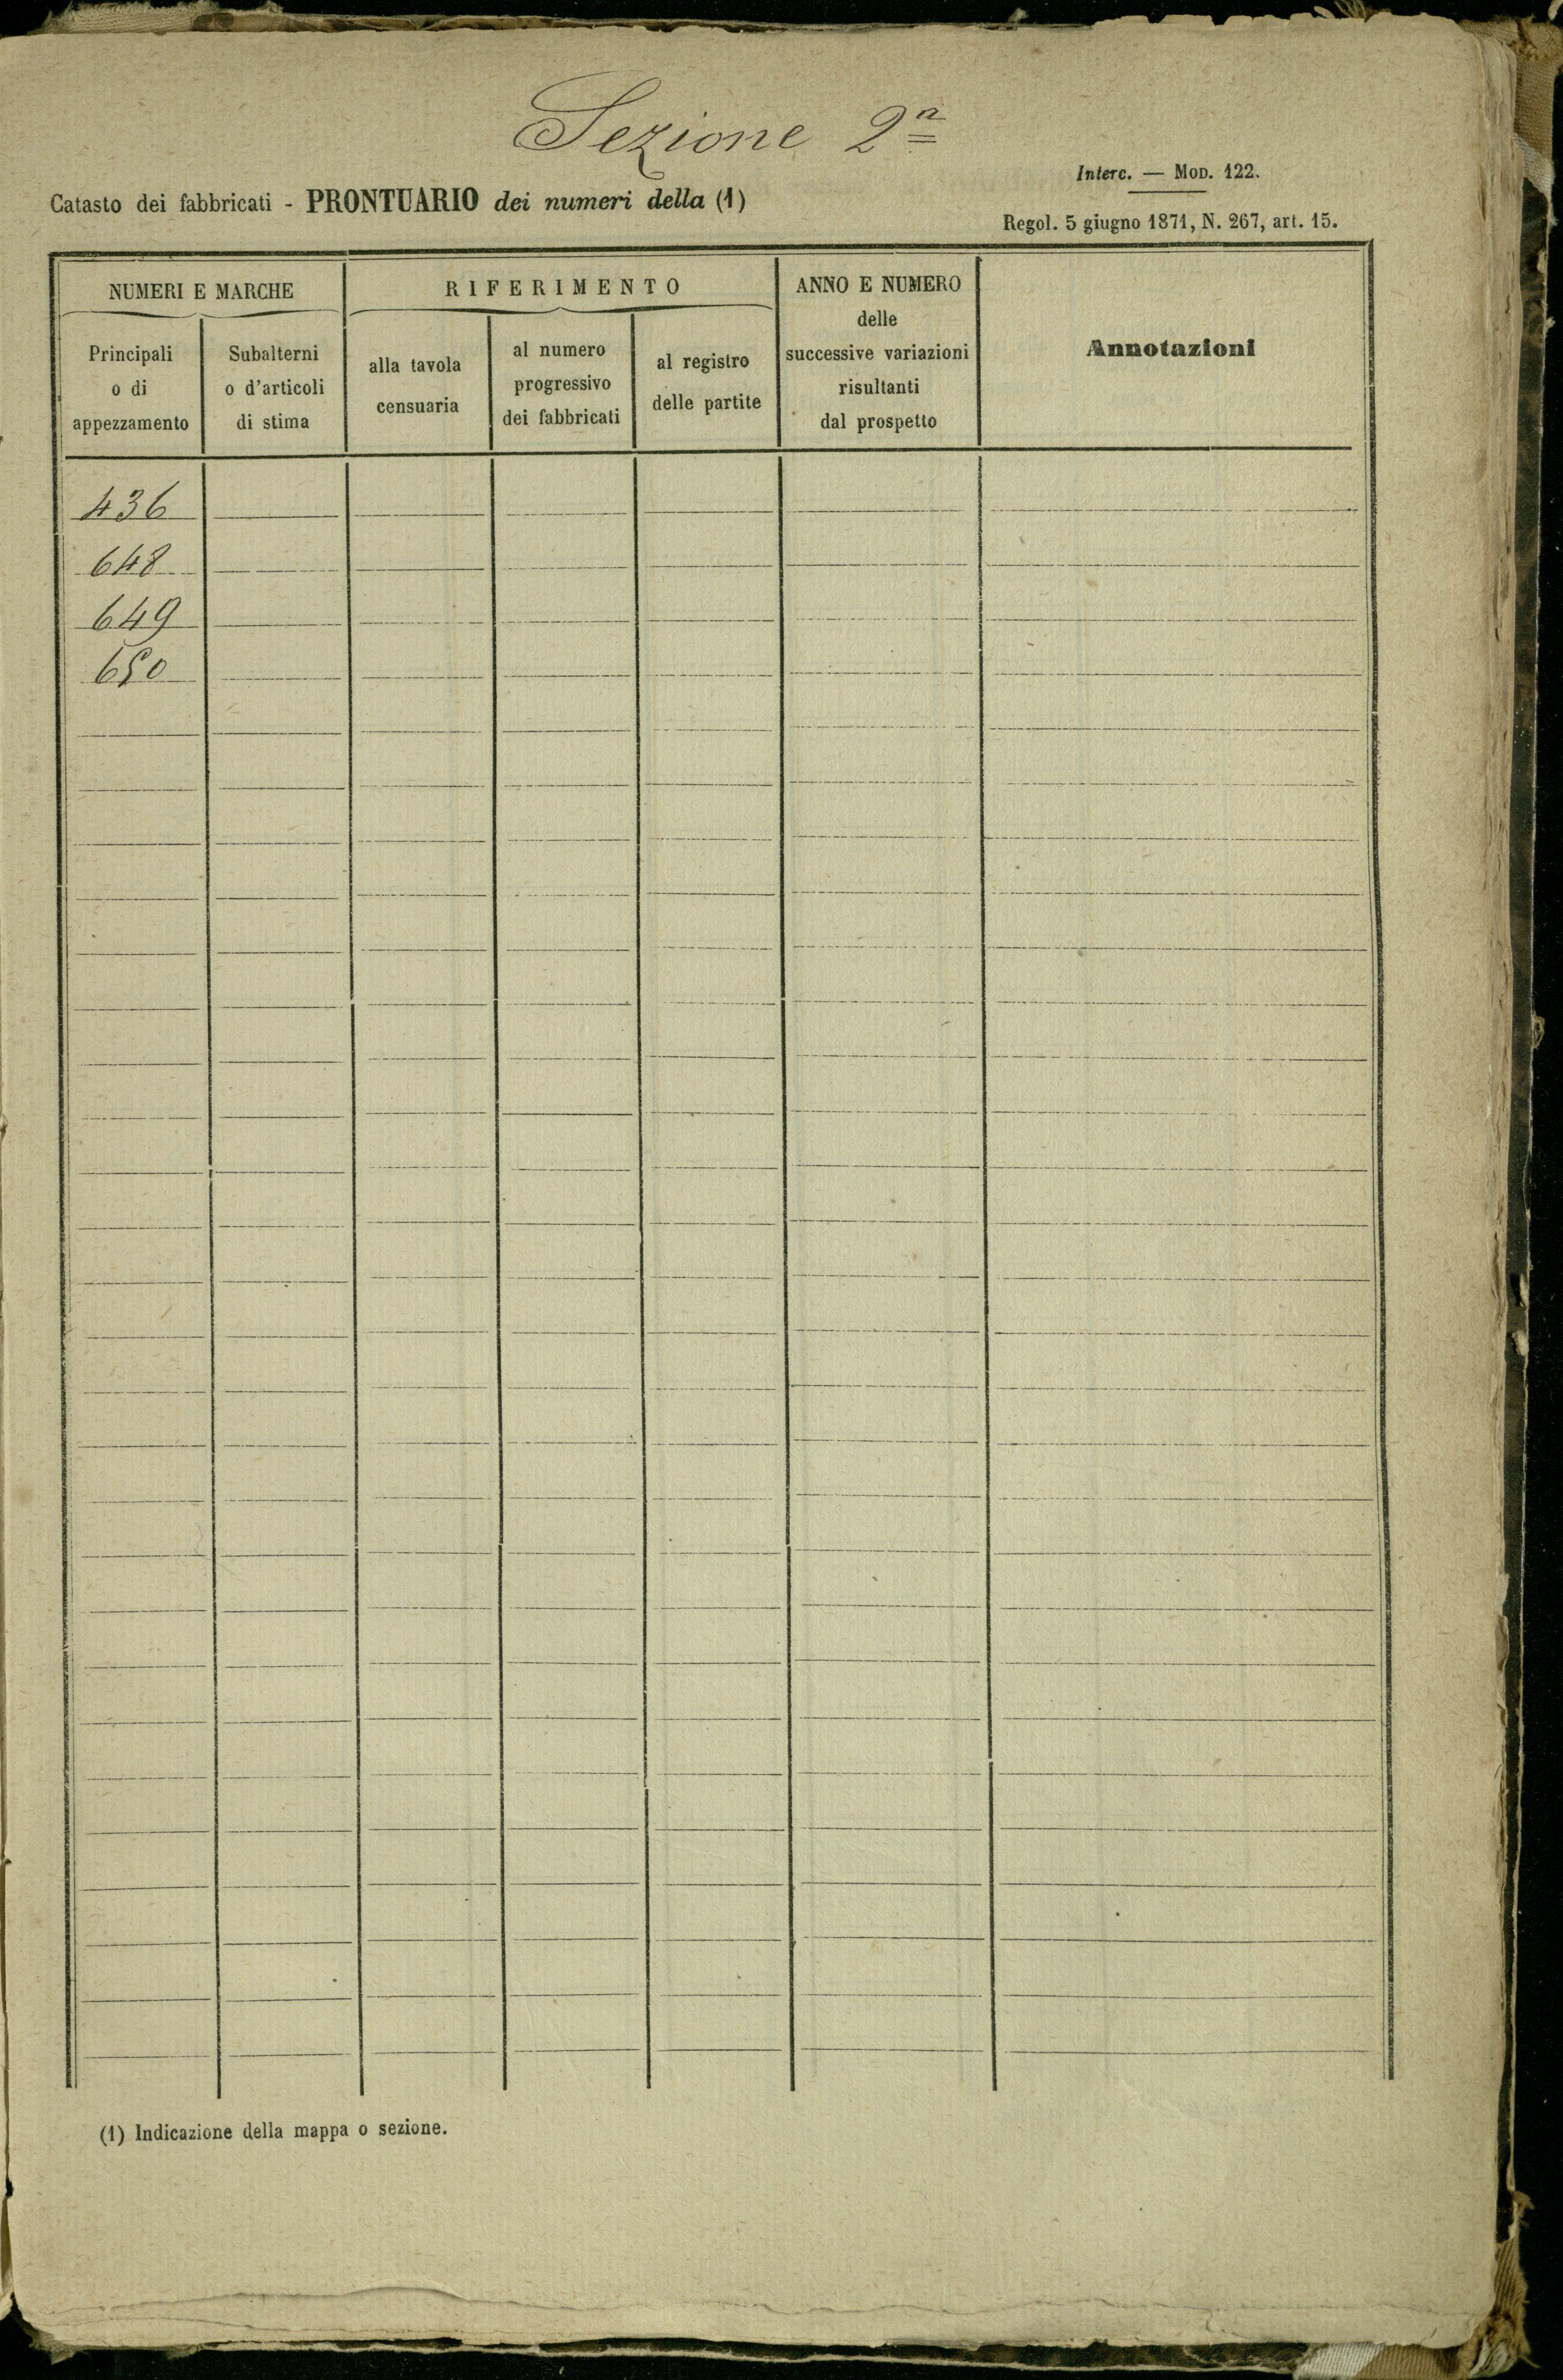 Sezione 2ª
Interc. — Mod. 122.
Catasto dei fabbricati - PRONTUARIO dei numeri della (1)
Regol. 5 giugno 1871, N. 267, art. 15.
NUMERI E MARCHE
Principali
o di
appezzamento
Subalterni
o d'articoli
di stima
RIFERIMENTO
alla tavola
censuaria
al numero
progressivo
dei fabbricati
al registro
delle partite
ANNO E NUMERO
delle
successive variazioni
risultanti
dal prospetto
Annotazioni
436
648
649
650
(1) Indicazione della mappa o sezione.